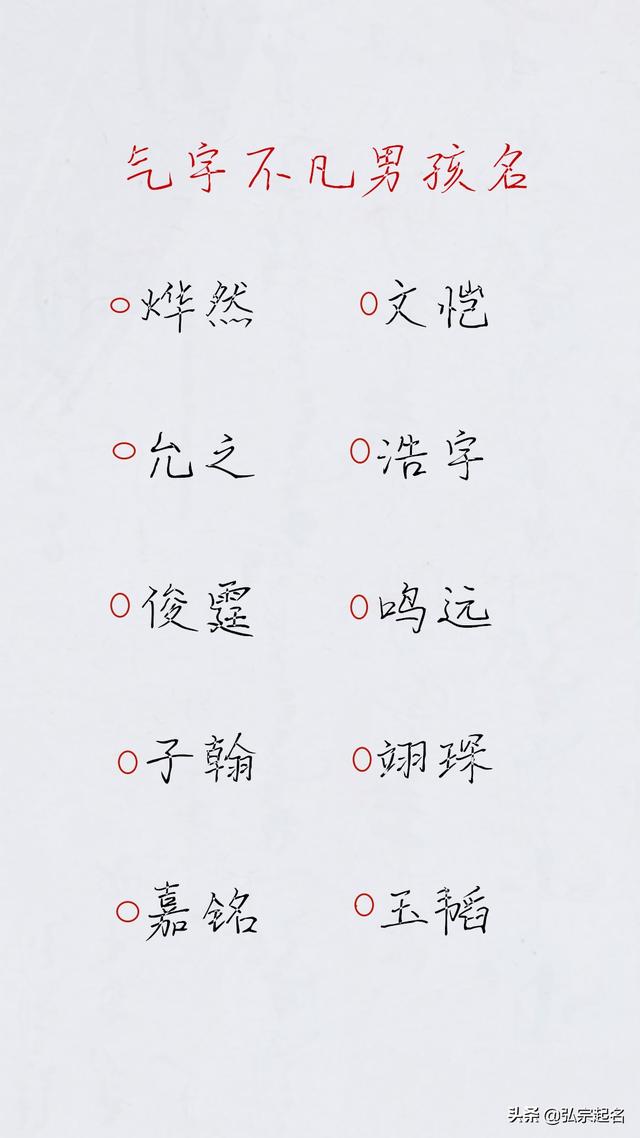 气宇不凡男孩名
烨然 文恺
允之 浩宇
俊霆 鸣远
子翰 翊琛
嘉铭 玉韬
头条 @弘宗起名